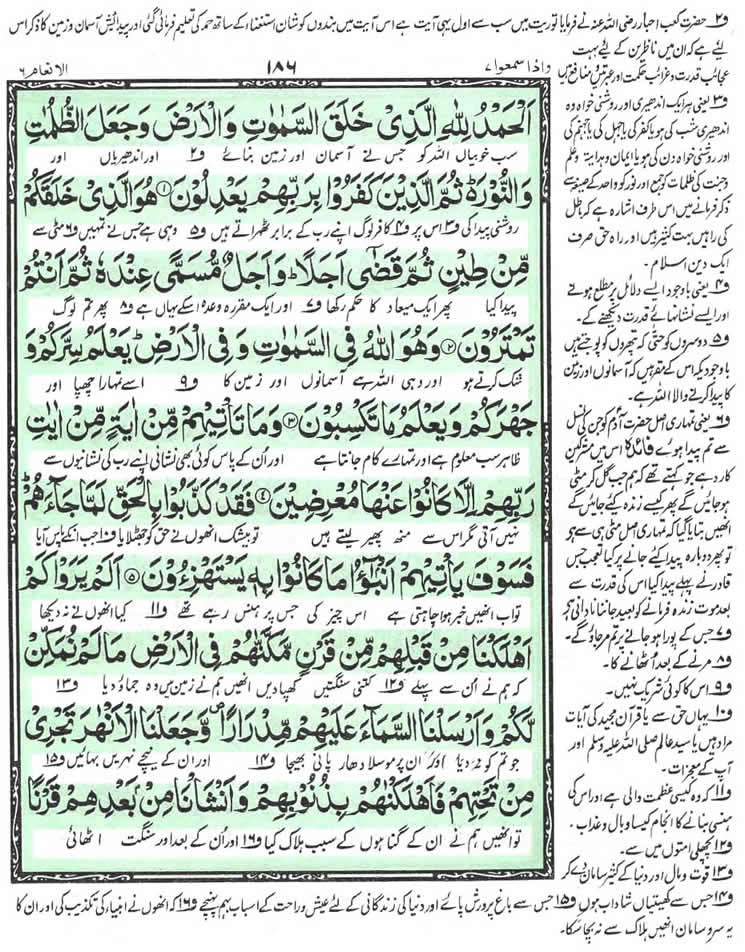 و۲ حضرت کعب احبار رضی اللہ عنہ نے فرمایا توریت میں سب سے اول یہی آیت ہے اس آیت میں بندوں کو شان استغناء کے ساتھ حمد کی تعلیم فرمائی گئی اور پیدائش آسمان و زمین کا ذکر اس
لئے ہے کہ ان میں ناظرین کے لئے بہت
عجائب قدرت و غرائب حکمت اور عبرتیں و منافع ہیں
واذا سمعوا ۷
۱۸۶
الانعام ۶
اَلْحَمْدُ لِلّٰهِ الَّذِیْ خَلَقَ السَّمٰوٰتِ وَالْاَرْضَ وَجَعَلَ الظُّلُمٰتِ
سب خوبیاں اللہ کو جس نے آسمان اور زمین بنائے و۲ اور اندھیریاں اور
وَالنُّوْرَ۬ ثُمَّ الَّذِیْنَ كَفَرُوْا بِرَبِّهِمْ یَعْدِلُوْنَ ۱ هُوَ الَّذِیْ خَلَقَكُمْ
روشنی پیدا کی و۳ اس پر و۴ کافر لوگ اپنے رب کے برابر ٹھہراتے ہیں و۵ وہی ہے جس نے تمہیں و۶ مٹی سے
مِّنْ طِیْنٍ ثُمَّ قَضٰۤی اَجَلًا ؕ وَاَجَلٌ مُّسَمًّی عِنْدَهٗ ثُمَّ اَنْتُمْ
پیدا کیا پھر ایک میعاد کا حکم رکھا و۷ اور ایک مقررہ وعدہ اسکے یہاں ہے و۸ پھر تم لوگ
تَمْتَرُوْنَ ۲ وَهُوَ اللّٰهُ فِی السَّمٰوٰتِ وَفِی الْاَرْضِ ؕ یَعْلَمُ سِرَّكُمْ وَ
شک کرتے ہو اور وہی اللہ ہے آسمانوں اور زمین کا و۹ اسے تمہارا چھپا اور
جَهْرَكُمْ وَیَعْلَمُ مَا تَكْسِبُوْنَ ۳ وَمَا تَاْتِیْهِمْ مِّنْ اٰیَةٍ مِّنْ اٰیٰتِ
ظاہر سب معلوم ہے اور تمہارے کام جانتا ہے اور اُن کے پاس کوئی بھی نشانی اپنے رب کی نشانیوں سے
رَبِّهِمْ اِلَّا كَانُوْا عَنْهَا مُعْرِضِیْنَ ۴ فَقَدْ كَذَّبُوْا بِالْحَقِّ لَمَّا جَآءَهُمْ ؕ
نہیں آتی مگر اس سے منھ پھیر لیتے ہیں تو بیشک انھوں نے حق کو جھٹلایا و۱۰ جب انکے پاس آیا
فَسَوْفَ یَاْتِیْهِمْ اَنْۢبٰٓؤُا مَا كَانُوْا بِهٖ یَسْتَهْزِءُوْنَ ۵ اَلَمْ یَرَوْا كَمْ
تو اب انھیں خبر ہوا چاہتی ہے اس چیز کی جس پر ہنس رہے تھے و۱۱ کیا انھوں نے نہ دیکھا
اَهْلَكْنَا مِنْ قَبْلِهِمْ مِّنْ قَرْنٍ مَّكَّنّٰهُمْ فِی الْاَرْضِ مَا لَمْ نُمَكِّنْ
کہ ہم نے اُن سے پہلے و۱۲ کتنی سنگتیں کھپا دیں انھیں ہم نے زمین میں وہ جماؤ دیا و۱۳
لَّكُمْ وَاَرْسَلْنَا السَّمَآءَ عَلَیْهِمْ مِّدْرَارًا ۪ وَّجَعَلْنَا الْاَنْهٰرَ تَجْرِیْ
جو تم کو نہ دیا اور اُن پر موسلا دھار پانی بھیجا و۱۴ اور ان کے نیچے نہریں بہائیں و۱۵
مِنْ تَحْتِهِمْ فَاَهْلَكْنٰهُمْ بِذُنُوْبِهِمْ وَاَنْشَاْنَا مِنْۢ بَعْدِهِمْ قَرْنًا
تو انھیں ہم نے ان کے گناہوں کے سبب ہلاک کیا و۱۶ اور اُن کے بعد اور سنگت اٹھائی
و۳ یعنی ہر ایک اندھیری اور روشنی خواہ وہ
اندھیری شب کی ہو یا کفر کی یا جہل کی یا جہنم کی
اور روشنی خواہ دن کی ہو یا ایمان و ہدایت و علم
و جنت کی ظلمات کو جمع اور نور کو واحد کے صیغہ سے
ذکر فرمانے میں اس طرف اشارہ ہے کہ باطل
کی راہیں بہت کثیر ہیں اور راہ حق صرف
ایک دین اسلام۔
و۴ یعنی باوجود ایسے دلائل پر مطلع ہونے
اور ایسے نشانہائے قدرت دیکھنے کے۔
و۵ دوسروں کو حتیٰ کہ پتھروں کو پوجتے ہیں
باوجودیکہ اس کے مقر ہیں کہ آسمانوں اور زمین
کا پیدا کرنے والا اللہ ہے۔
و۶ یعنی تمہاری اصل حضرت آدم کو جن کی نسل
سے تم پیدا ہوئے فائدہ اس میں مشرکین
کا رد ہے جو کہتے تھے کہ ہم جب گل کر مٹی
ہو جائیں گے پھر کیسے زندہ کئے جائیں گے
انھیں بتایا گیا کہ تمہاری اصل مٹی ہی سے ہے
تو پھر دوبارہ پیدا کئے جانے پر کیا تعجب جس
قادر نے پہلے پیدا کیا اس کی قدرت سے
بعد موت زندہ فرمانے کو بعید جاننا نادانی ہے
و۷ جس کے پورا ہو جانے پر تم مر جاؤ گے۔
و۸ مرنے کے بعد اٹھانے کا۔
و۹ اس کا کوئی شریک نہیں۔
و۱۰ یہاں حق سے یا قرآن مجید کی آیات
مراد ہیں یا سید عالم صلی اللہ علیہ وسلم اور
آپ کے معجزات۔
و۱۱ کہ وہ کیسی عظمت والی ہے اور اس کی
ہنسی بنانے کا انجام کیسا وبال و عذاب۔
و۱۲ پچھلی امتوں میں سے۔
و۱۳ قوت و مال اور دنیا کے کثیر سامان دے کر
و۱۴ جس سے کھیتیاں شاداب ہوں و۱۵ جس سے باغ پرورش پائے اور دنیا کی زندگانی کے لئے عیش و راحت کے اسباب بہم پہنچے و۱۶ کہ انھوں نے انبیاء کی تکذیب کی اور ان کا
یہ سروسامان انھیں ہلاک سے نہ بچا سکا۔